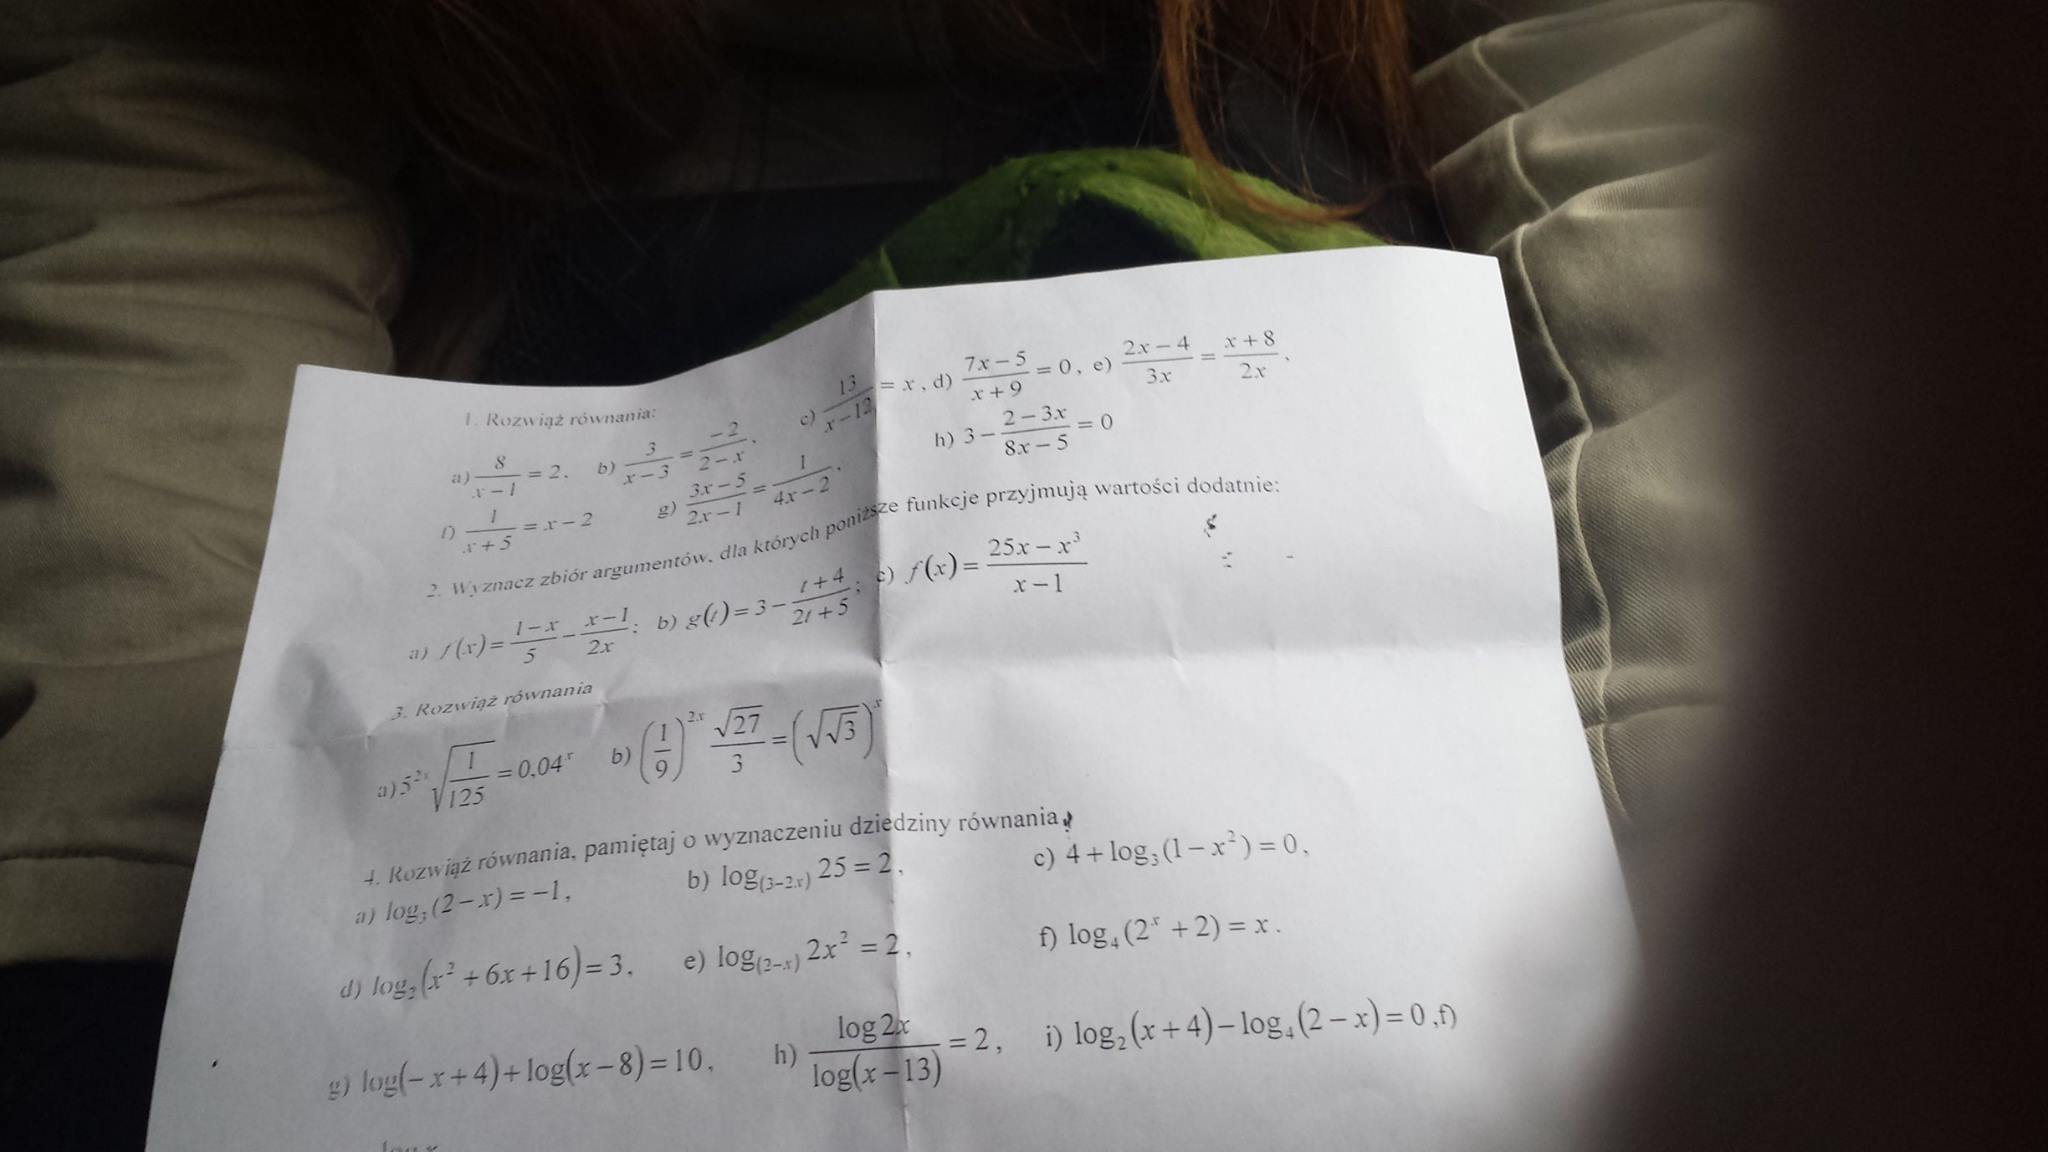 1. Rozwiąż równania:
a) 8/(x-1) = 2. b) 3/(x-3) = -2/(2-x), c) 13/(x-12) = x, d) (7x-5)/(x+9) = 0, e) (2x-4)/3x = (x+8)/2x,
f) 1/(x+5) = x-2 g) (3x-5)/(2x-1) = 1/(4x-2), h) 3 - (2-3x)/(8x-5) = 0
2. Wyznacz zbiór argumentów, dla których poniższe funkcje przyjmują wartości dodatnie:
a) f(x) = (1-x)/5 - (x-1)/2x; b) g(t) = 3 - (t+4)/(2t+5); c) f(x) = (25x-x³)/(x-1)
3. Rozwiąż równania
a) 5^(2x) √(1/125) = 0,04^x b) (1/9)^(2x) √27/3 = (√√3)^x
4. Rozwiąż równania, pamiętaj o wyznaczeniu dziedziny równania
a) log₃(2-x) = -1, b) log₍₃₋₂ₓ₎ 25 = 2, c) 4 + log₃(1-x²) = 0,
d) log₂(x²+6x+16) = 3, e) log₍₂₋ₓ₎ 2x² = 2, f) log₄(2^x + 2) = x.
g) log(-x+4) + log(x-8) = 10, h) log 2x/log(x-13) = 2, i) log₂(x+4) - log₄(2-x) = 0 ,f)